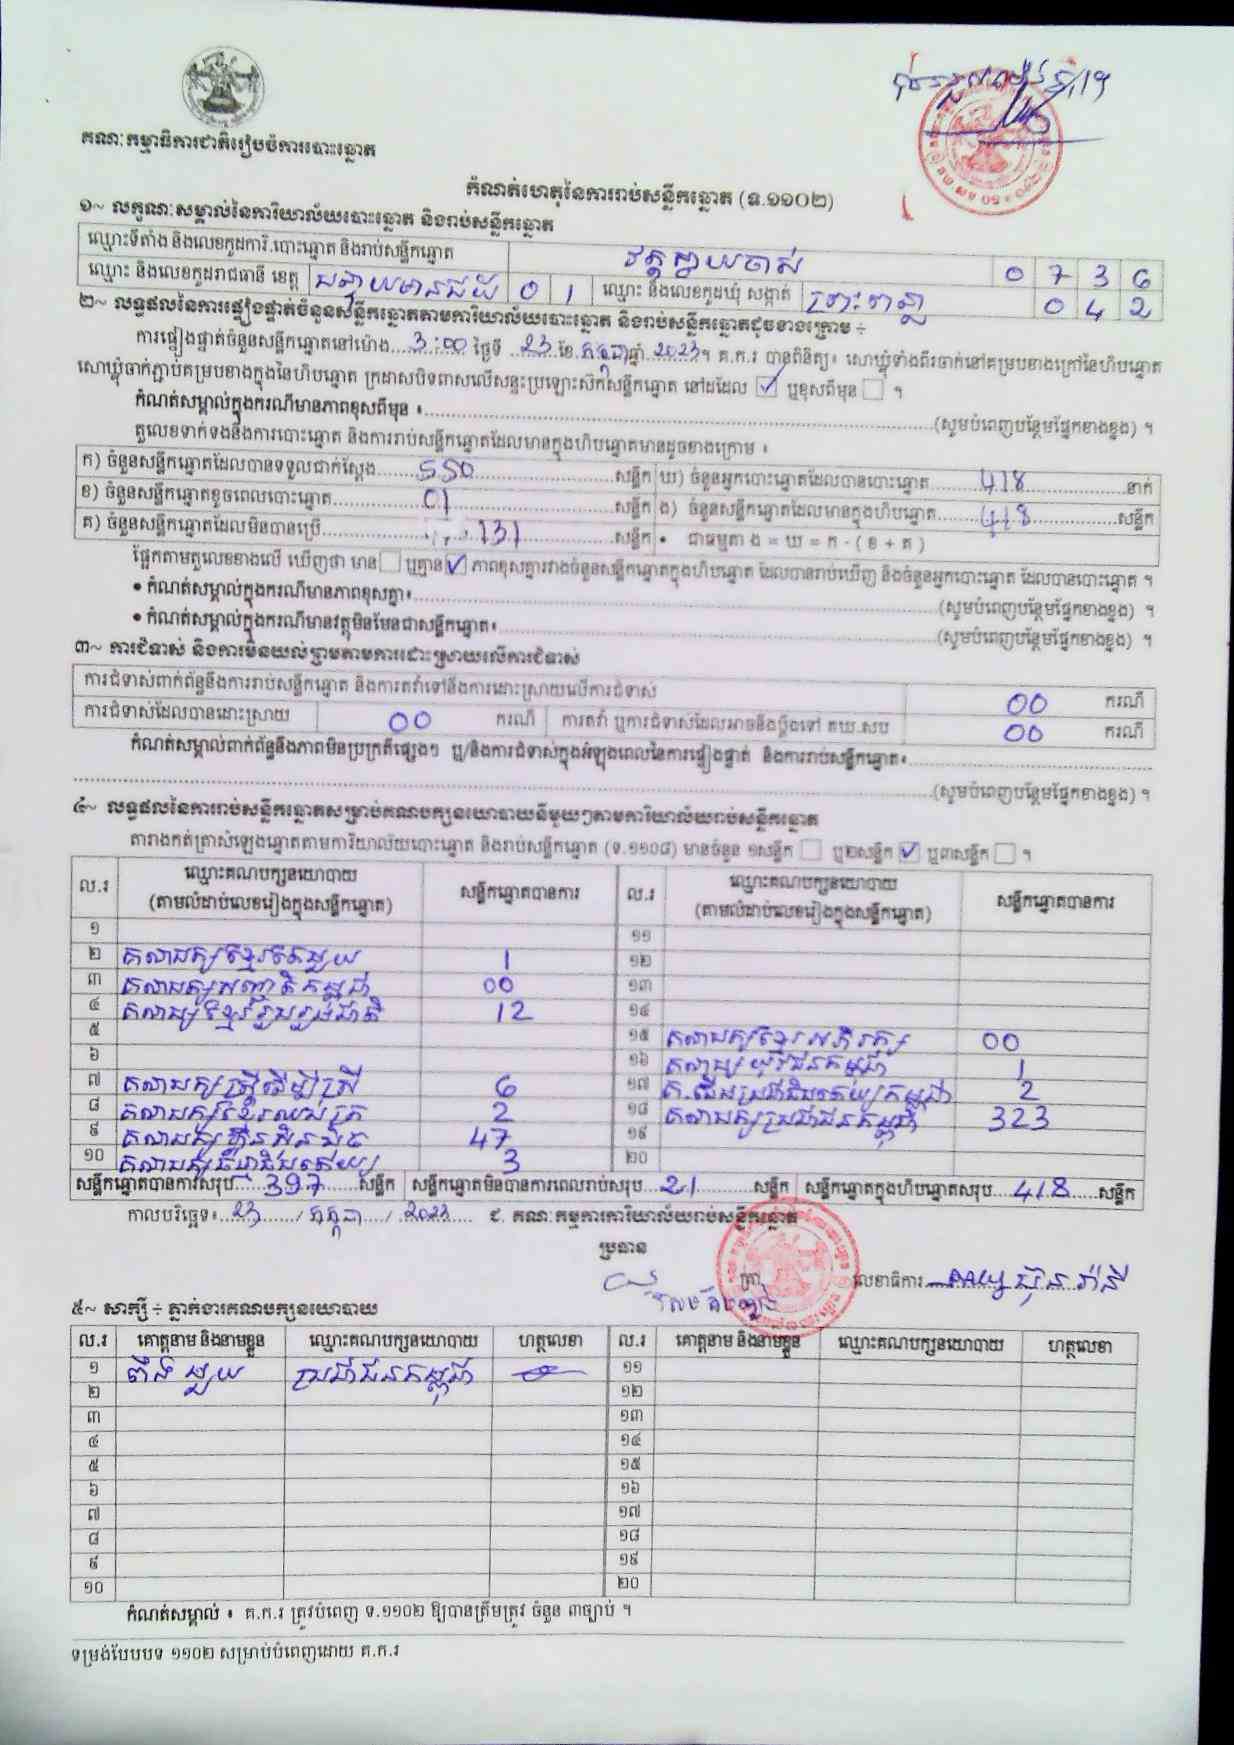 គណៈកម្មាធិការជាតិរៀបចំការបោះឆ្នោត
កំណត់ហេតុនៃការរាប់សន្លឹកឆ្នោត (ទ.១១០២)
១~ លក្ខណៈសម្គាល់នៃការិយាល័យបោះឆ្នោត និងរាប់សន្លឹកឆ្នោត
ឈ្មោះទីតាំង និងលេខកូដការិ.បោះឆ្នោត និងរាប់សន្លឹកឆ្នោត វត្តស្វាយចាស់ 0 7 3 6
ឈ្មោះ និងលេខកូដរាជធានី ខេត្ត បន្ទាយមានជ័យ 0 1 ឈ្មោះ និងលេខកូដឃុំ សង្កាត់ 0 4 2
២~ លទ្ធផលនៃការផ្ទៀងផ្ទាត់ចំនួនសន្លឹកឆ្នោតតាមការិយាល័យបោះឆ្នោត និងរាប់សន្លឹកឆ្នោតដូចខាងក្រោម ÷
ការផ្ទៀងផ្ទាត់ចំនួនសន្លឹកឆ្នោតនៅម៉ោង 3:00 ថ្ងៃទី 23 ខែ កក្កដា ឆ្នាំ 2023 ។ គ.ក.រ បានពិនិត្យ៖ សោឃ្លុំទាំងពីរចាក់នៅគម្របខាងក្រៅនៃហិបឆ្នោត
សោឃ្លុំចាក់ភ្ជាប់គម្របខាងក្នុងនៃហិបឆ្នោត ក្រដាសបិទពាសលើសន្ទះប្រឡោះស៊កសន្លឹកឆ្នោត នៅដដែល ☑ ឬខុសពីមុន ☐ ។
កំណត់សម្គាល់ក្នុងករណីមានភាពខុសពីមុន ៖ (សូមបំពេញបន្ថែមផ្នែកខាងខ្នង) ។
តួលេខទាក់ទងនឹងការបោះឆ្នោត និងការរាប់សន្លឹកឆ្នោតដែលមានក្នុងហិបឆ្នោតមានដូចខាងក្រោម ៖
ក) ចំនួនសន្លឹកឆ្នោតដែលបានទទួលជាក់ស្តែង 550 សន្លឹក ឃ) ចំនួនអ្នកបោះឆ្នោតដែលបានបោះឆ្នោត 418 នាក់
ខ) ចំនួនសន្លឹកឆ្នោតខូចពេលបោះឆ្នោត 01 សន្លឹក ង) ចំនួនសន្លឹកឆ្នោតដែលមានក្នុងហិបឆ្នោត 418 សន្លឹក
គ) ចំនួនសន្លឹកឆ្នោតដែលមិនបានប្រើ 131 សន្លឹក • ជាធម្មតា ង = ឃ = ក - ( ខ + គ )
ផ្អែកតាមតួលេខខាងលើ ឃើញថា មាន ☐ ឬគ្មាន ☑ ភាពខុសគ្នារវាងចំនួនសន្លឹកឆ្នោតក្នុងហិបឆ្នោត ដែលបានរាប់ឃើញ និងចំនួនអ្នកបោះឆ្នោត ដែលបានបោះឆ្នោត ។
• កំណត់សម្គាល់ក្នុងករណីមានភាពខុសគ្នា៖ (សូមបំពេញបន្ថែមផ្នែកខាងខ្នង) ។
• កំណត់សម្គាល់ក្នុងករណីមានវត្ថុមិនមែនជាសន្លឹកឆ្នោត៖ (សូមបំពេញបន្ថែមផ្នែកខាងខ្នង) ។
៣~ ការជំទាស់ និងការមិនយល់ព្រមតាមការដោះស្រាយលើការជំទាស់
ការជំទាស់ពាក់ព័ន្ធនឹងការរាប់សន្លឹកឆ្នោត និងការតវ៉ាទៅនឹងការដោះស្រាយលើការជំទាស់ 00 ករណី
ការជំទាស់ដែលបានដោះស្រាយ 00 ករណី ការតវ៉ា ឬការជំទាស់ដែលអាចនឹងប្តឹងទៅ គឃ.សប 00 ករណី
កំណត់សម្គាល់ពាក់ព័ន្ធនឹងភាពមិនប្រក្រតីផ្សេងៗ ឬ/និងការជំទាស់ក្នុងអំឡុងពេលនៃការផ្ទៀងផ្ទាត់ និងការរាប់សន្លឹកឆ្នោត៖
(សូមបំពេញបន្ថែមផ្នែកខាងខ្នង) ។
៤~ លទ្ធផលនៃការរាប់សន្លឹកឆ្នោតសម្រាប់គណបក្សនយោបាយនីមួយៗតាមការិយាល័យរាប់សន្លឹកឆ្នោត
តារាងកត់ត្រាសំឡេងឆ្នោតតាមការិយាល័យបោះឆ្នោត និងរាប់សន្លឹកឆ្នោត (ទ.១១០៨) មានចំនួន ១សន្លឹក ☐ ឬ២សន្លឹក ☑ ឬ៣សន្លឹក ☐ ។
ល.រ ឈ្មោះគណបក្សនយោបាយ (តាមលំដាប់លេខរៀងក្នុងសន្លឹកឆ្នោត) សន្លឹកឆ្នោតបានការ ល.រ ឈ្មោះគណបក្សនយោបាយ (តាមលំដាប់លេខរៀងក្នុងសន្លឹកឆ្នោត) សន្លឹកឆ្នោតបានការ
១ ១១
២ គណបក្សខ្មែរតែមួយ 1 ១២
៣ គណបក្សសញ្ជាតិកម្ពុជា 00 ១៣
៤ គណបក្សខ្មែររួបរួមជាតិ 12 ១៤
៥ ១៥ គណបក្សខ្មែរអភិរក្ស 00
៦ ១៦ គណបក្សយុវជនកម្ពុជា 1
៧ គណបក្សស្ត្រីដើម្បីស្ត្រី 6 ១៧ គ.ជើងប្រជាធិបតេយ្យកម្ពុជា 2
៨ គណបក្សខ្មែរឈប់ក្រ 2 ១៨ គណបក្សប្រជាជនកម្ពុជា 323
៩ គណបក្សហ៊្វុនស៊ិនប៉ិច 47 ១៩
១០ គណបក្សធម្មាធិបតេយ្យ 3 ២០
សន្លឹកឆ្នោតបានការសរុប 397 សន្លឹក សន្លឹកឆ្នោតមិនបានការពេលរាប់សរុប 21 សន្លឹក សន្លឹកឆ្នោតក្នុងហិបឆ្នោតសរុប 418 សន្លឹក
កាលបរិច្ឆេទ៖ 23 / កក្កដា / 2023 ជ. គណៈកម្មការការិយាល័យរាប់សន្លឹកឆ្នោត
ប្រធាន
ត្រា លេខាធិការ
៥~ សាក្សី ÷ ភ្នាក់ងារគណបក្សនយោបាយ
ល.រ គោត្តនាម និងនាមខ្លួន ឈ្មោះគណបក្សនយោបាយ ហត្ថលេខា ល.រ គោត្តនាម និងនាមខ្លួន ឈ្មោះគណបក្សនយោបាយ ហត្ថលេខា
១ ប្រជាជនកម្ពុជា ១១
២ ១២
៣ ១៣
៤ ១៤
៥ ១៥
៦ ១៦
៧ ១៧
៨ ១៨
៩ ១៩
១០ ២០
កំណត់សម្គាល់ ៖ គ.ក.រ ត្រូវបំពេញ ទ.១១០២ ឱ្យបានត្រឹមត្រូវ ចំនួន ៣ច្បាប់ ។
ទម្រង់បែបបទ ១១០២ សម្រាប់បំពេញដោយ គ.ក.រ